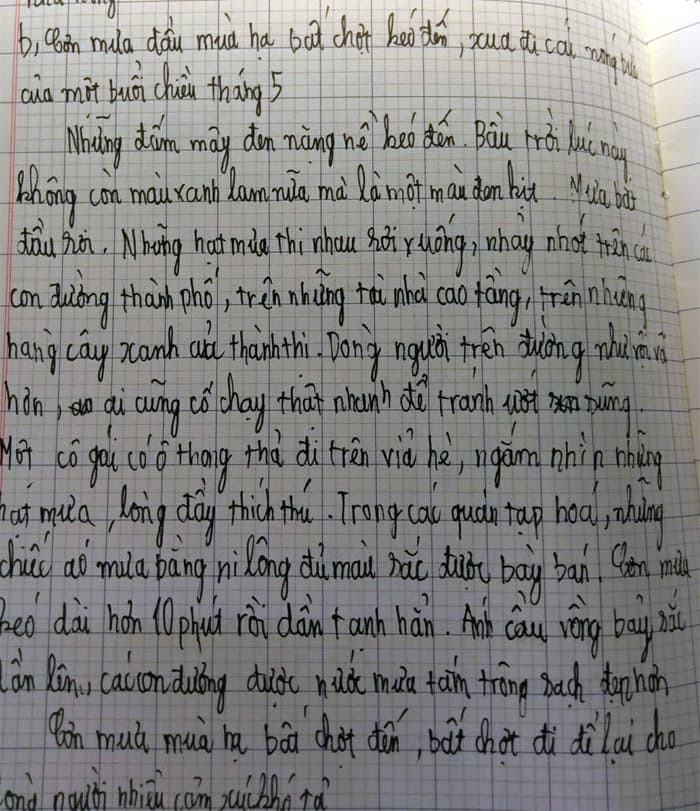 b, Cơn mưa đầu mùa hạ bất chợt kéo đến, xua đi cái nóng bức
của một buổi chiều tháng 5
Những đám mây đen nặng nề kéo đến. Bầu trời lúc này
không còn màu xanh lam nữa mà là một màu đen kịt. Mưa bắt
đầu rơi. Những hạt mưa thi nhau rơi xuống, nhảy nhót trên các
con đường thành phố, trên những tòa nhà cao tầng, trên những
hàng cây xanh của thành thị. Dòng người trên đường như vội vã
hơn, ai cũng cố chạy thật nhanh để tránh ướt sũng.
Một cô gái có ô thong thả đi trên vỉa hè, ngắm nhìn những
hạt mưa, lòng đầy thích thú. Trong các quán tạp hoá, những
chiếc áo mưa bằng ni lông đủ màu sắc được bày bán. Cơn mưa
kéo dài hơn 10 phút rồi dần tạnh hẳn. Ánh cầu vồng bảy sắc
dần lên, các con đường được nước mưa tắm trông sạch đẹp hơn
Cơn mưa mùa hạ bất chợt đến, bất chợt đi để lại cho
lòng người nhiều cảm xúc khó tả